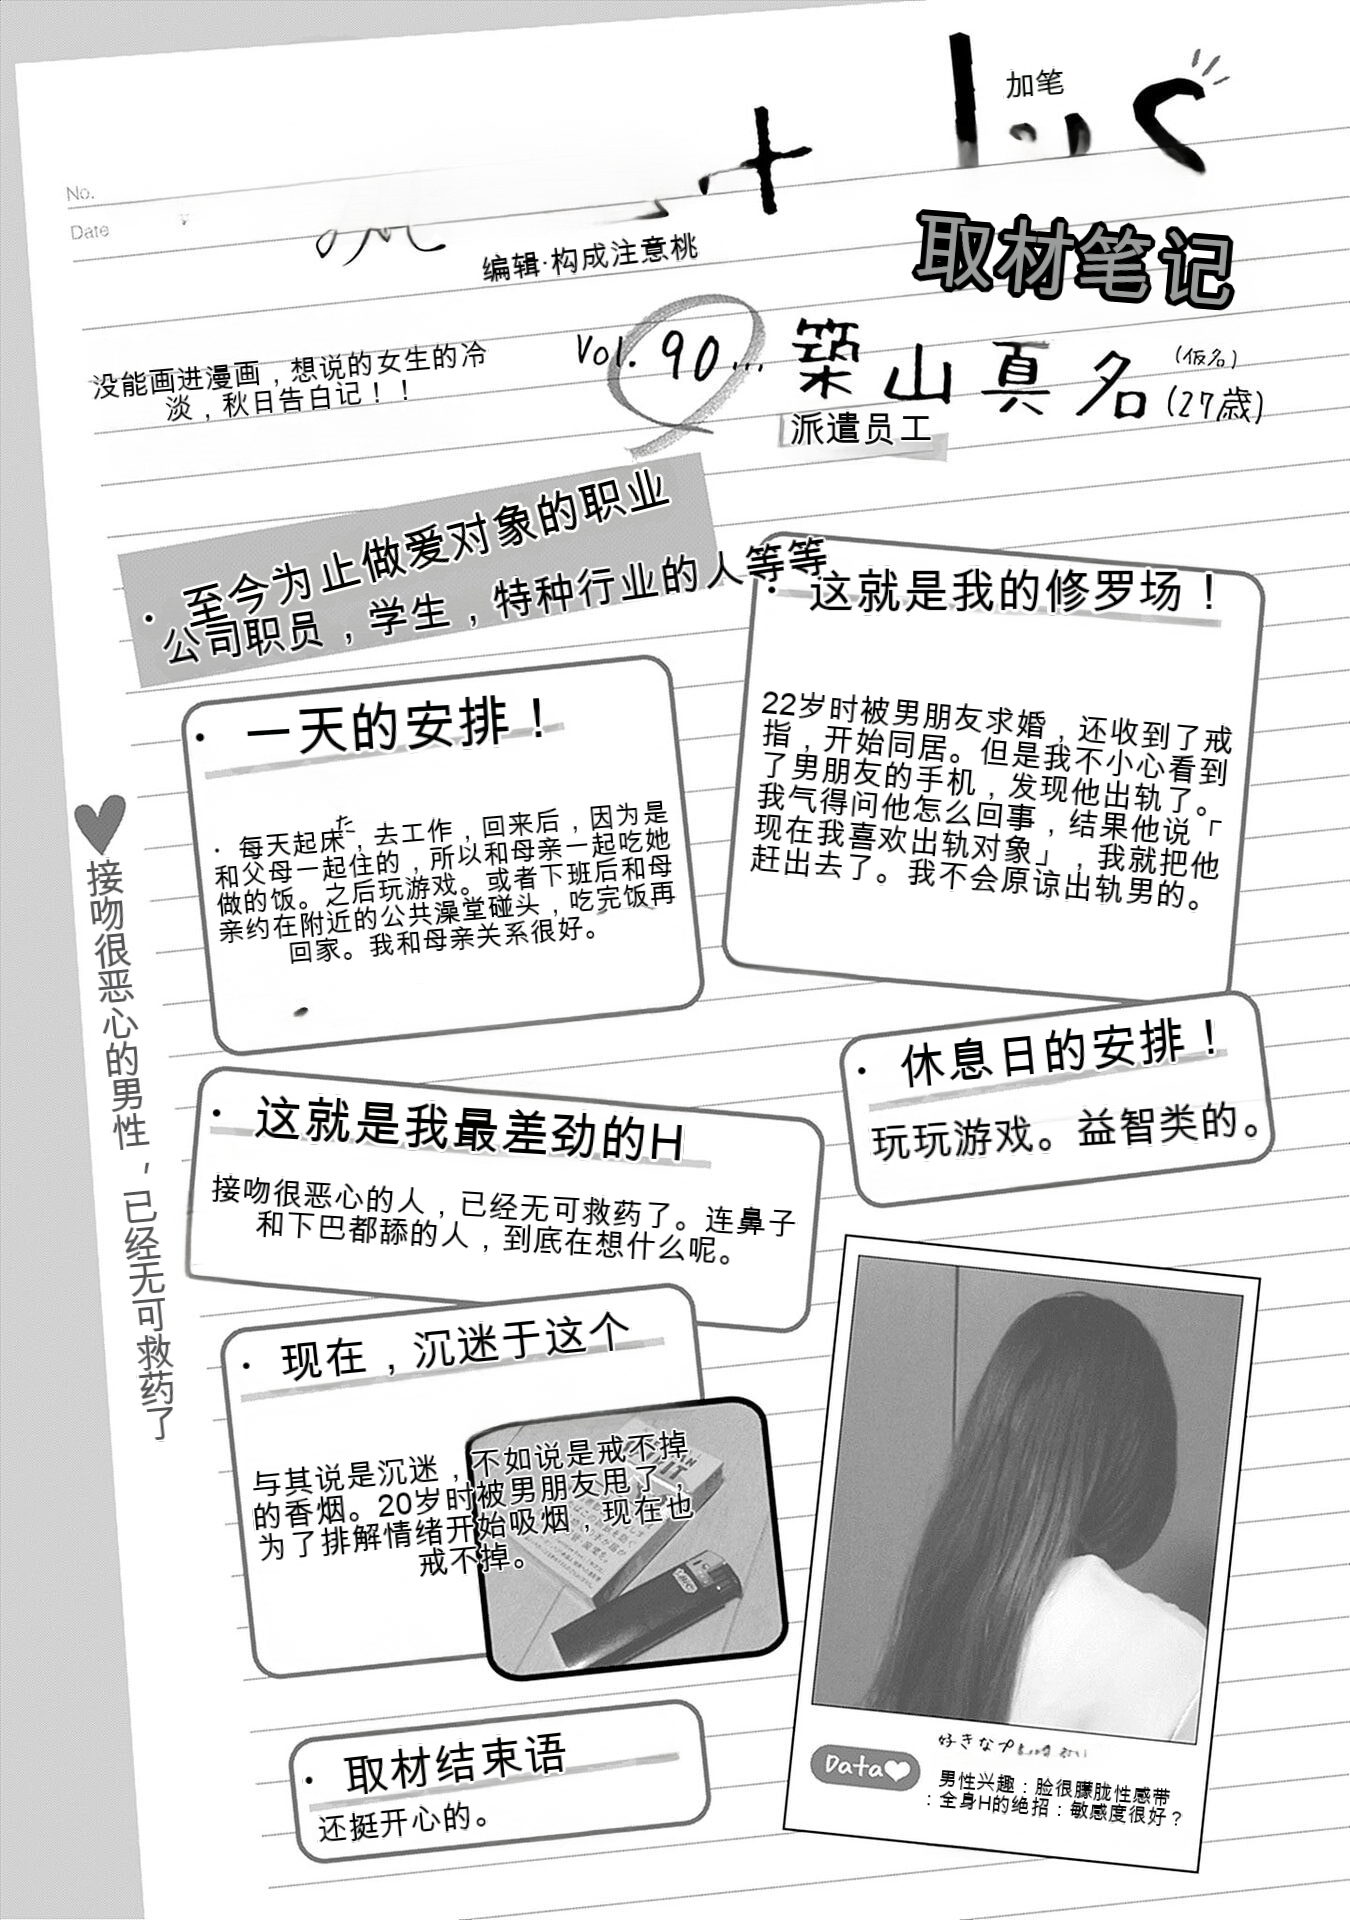 加笔
No.
Date
编辑·构成注意桃
取材笔记
Vol. 90...
築山真名
(仮名)
(27歳)
派遣员工
没能画进漫画，想说的女生的冷
淡，秋日告白记！！
· 至今为止做爱对象的职业
公司职员，学生，特种行业的人等等
· 这就是我的修罗场！
22岁时被男朋友求婚，还收到了戒
指，开始同居。但是我不小心看到
了男朋友的手机，发现他出轨了。
我气得问他怎么回事，结果他说「
现在我喜欢出轨对象」，我就把他
赶出去了。我不会原谅出轨男的。
· 一天的安排！
た
· 每天起床，去工作，回来后，因为是
和父母一起住的，所以和母亲一起吃她
做的饭。之后玩游戏。或者下班后和母
亲约在附近的公共澡堂碰头，吃完饭再
回家。我和母亲关系很好。
接吻很恶心的男性，已经无可救药了
· 休息日的安排！
玩玩游戏。益智类的。
· 这就是我最差劲的H
接吻很恶心的人，已经无可救药了。连鼻子
和下巴都舔的人，到底在想什么呢。
· 现在，沉迷于这个
与其说是沉迷，不如说是戒不掉
的香烟。20岁时被男朋友甩了，
为了排解情绪开始吸烟，现在也
戒不掉。
· 取材结束语
还挺开心的。
好きなプ
Data
男性兴趣：脸很朦胧性感带
：全身H的绝招：敏感度很好？